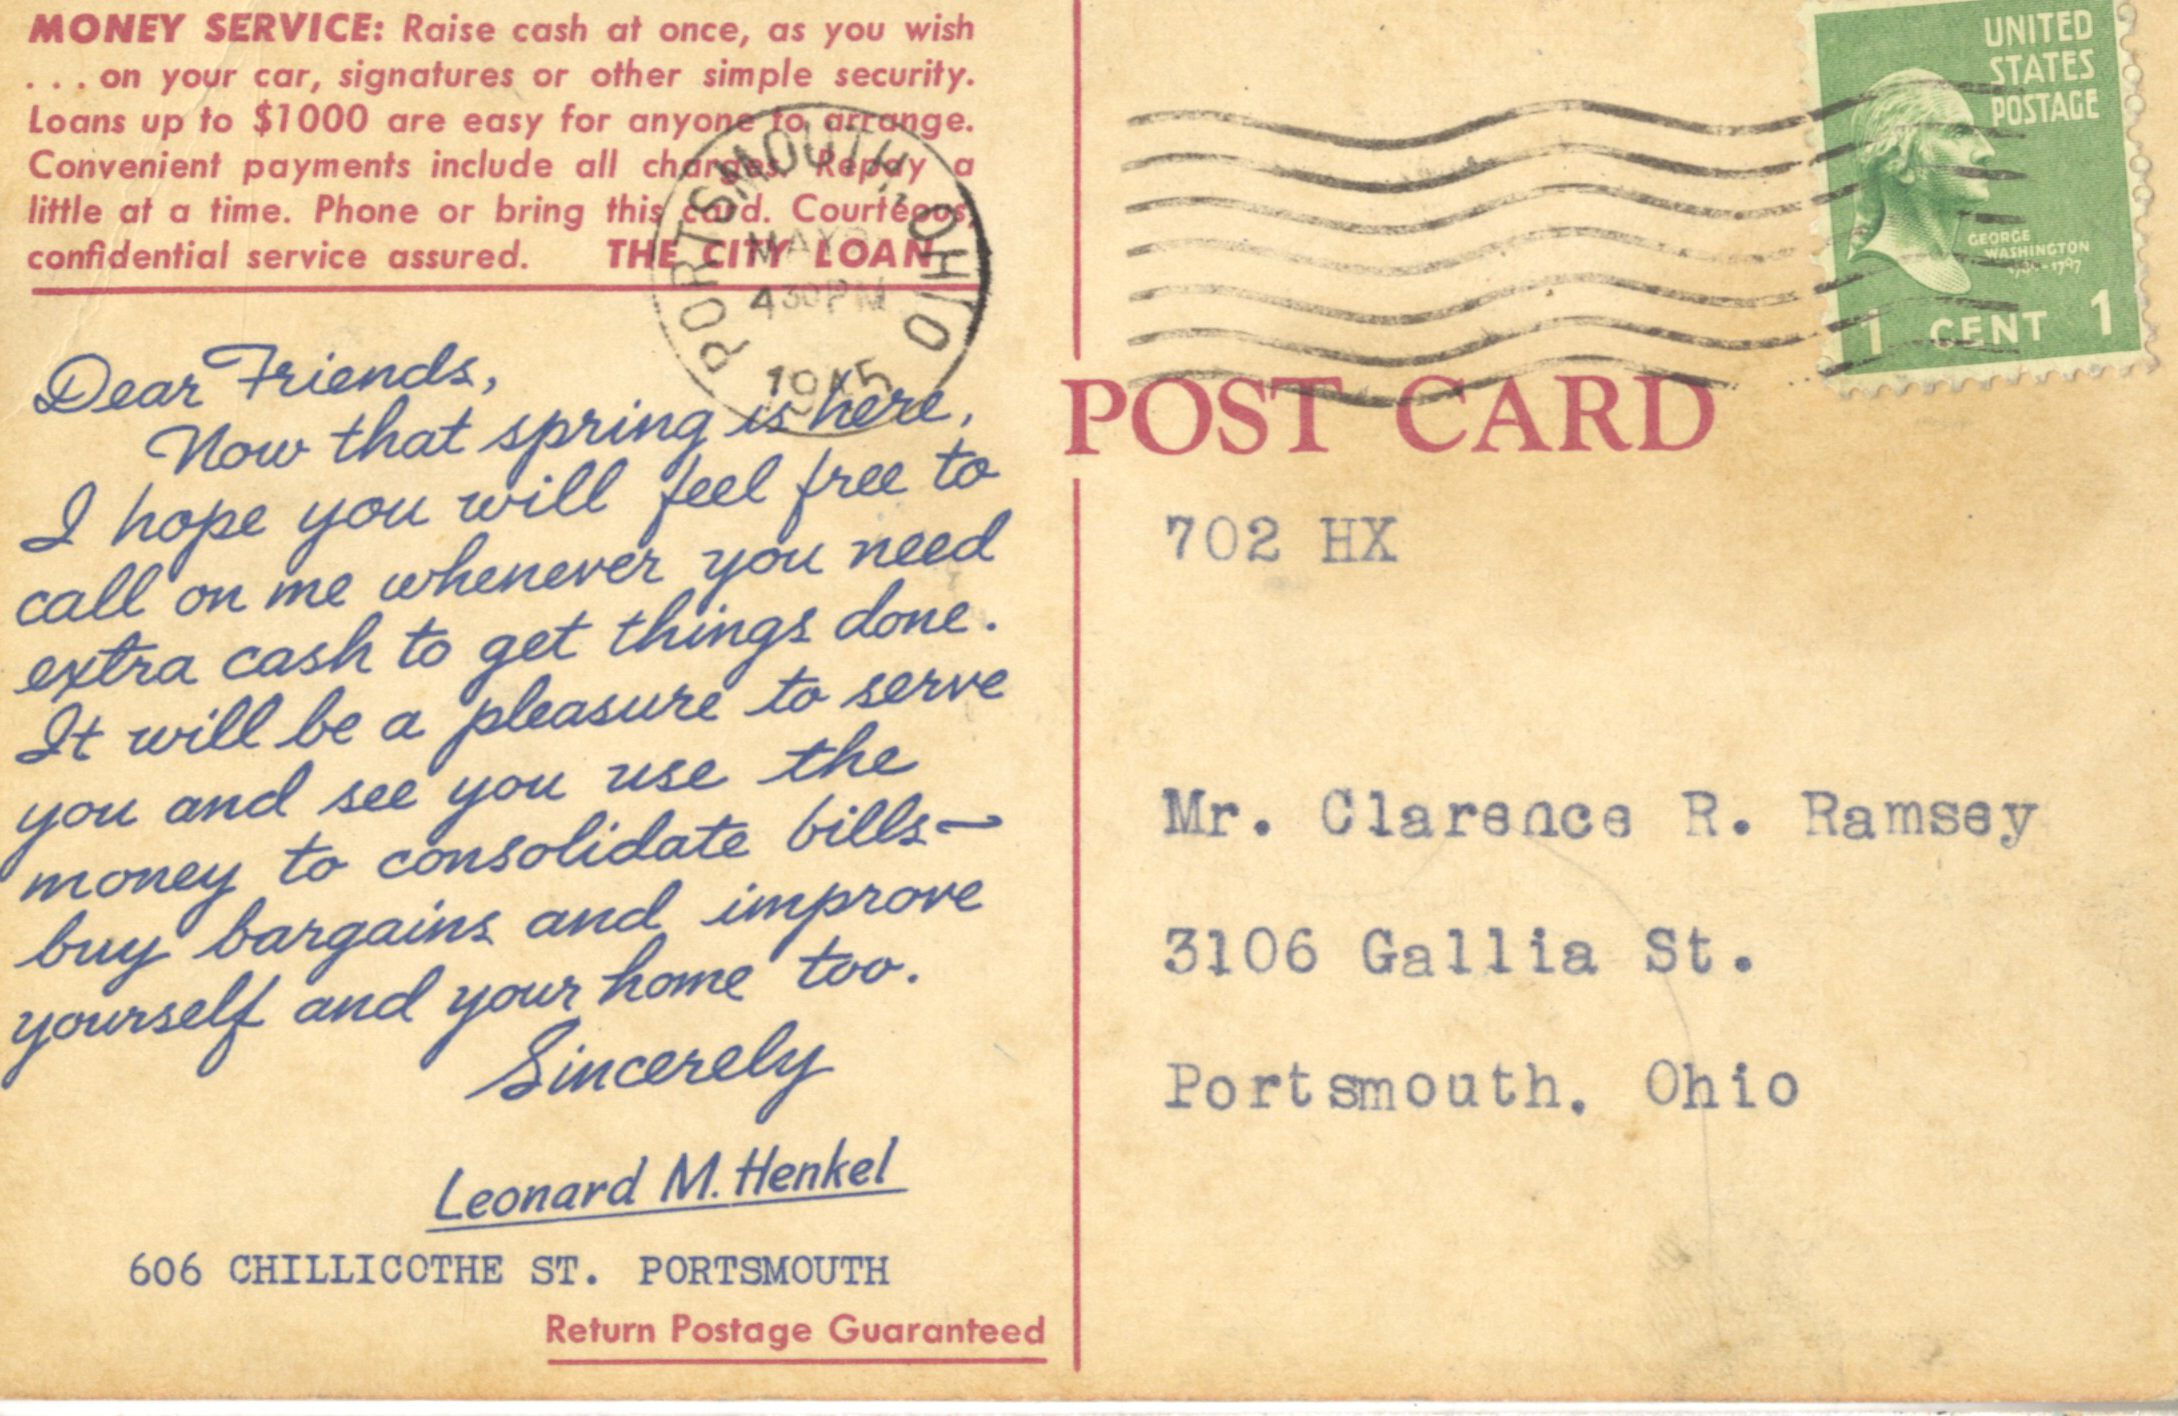 MONEY SERVICE: Raise cash at once, as you wish
. . . on your car, signatures or other simple security.
Loans up to $1000 are easy for anyone to arrange.
Convenient payments include all charges. Repay a
little at a time. Phone or bring this card. Courteous,
confidential service assured. THE CITY LOAN
PORTSMOUTH, OHIO
MAY
4 30 PM
1945
Dear Friends,
Now that spring is here,
I hope you will feel free to
call on me whenever you need
extra cash to get things done.
It will be a pleasure to serve
you and see you use the
money to consolidate bills—
buy bargains and improve
yourself and your home too.
Sincerely
Leonard M. Henkel
606 CHILLICOTHE ST. PORTSMOUTH
Return Postage Guaranteed
UNITED
STATES
POSTAGE
GEORGE
WASHINGTON
1 CENT 1
POST CARD
702 HX
Mr. Clarence R. Ramsey
3106 Gallia St.
Portsmouth, Ohio